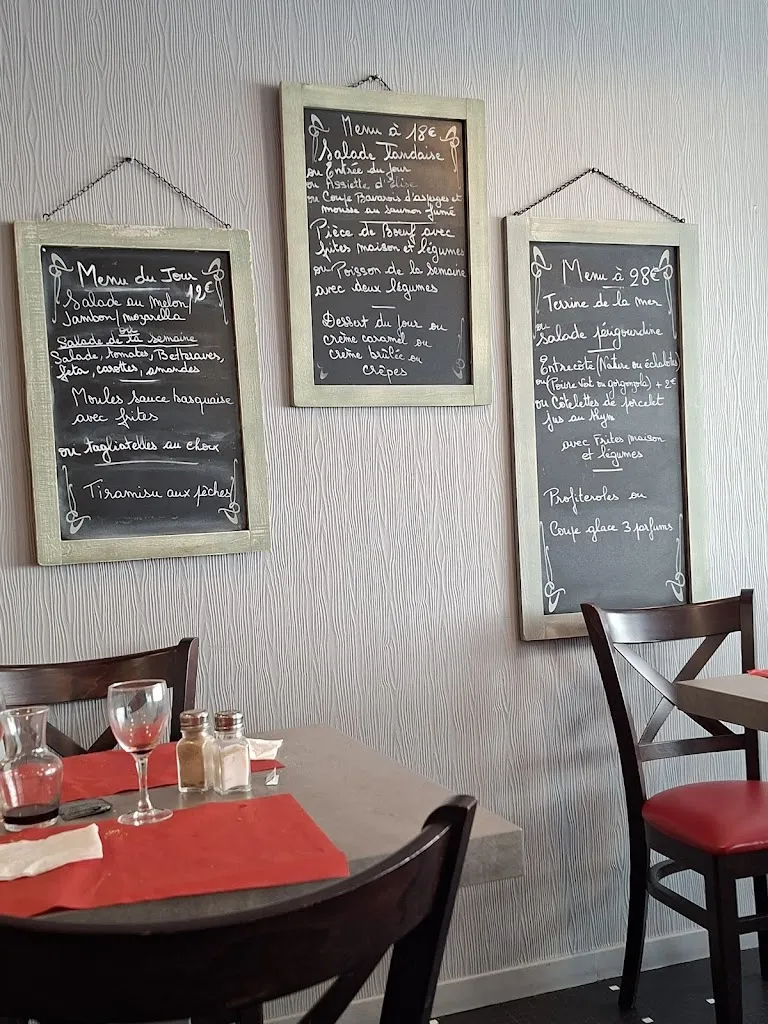 Menu du Jour
12€
Salade au melon/
Jambon/mozarella
ou
Salade de la semaine
Salade, tomates, Betteraves,
feta, carottes, amandes
Moules sauce basquaise
avec frites
ou tagliatelles au choix
Tiramisu aux pêches
Menu à 18€
Salade Landaise
ou Entrée du jour
ou Assiette d'Elise
ou Coupe Bavarois d'asperges et
mousse au saumon fumé
Pièce de Boeuf avec
frites maison et légumes
ou Poisson de la semaine
avec deux légumes
Dessert du jour ou
creme caramel ou
creme brûlée ou
crêpes
Menu à 28€
Terrine de la mer
ou
salade périgourdine
Entrecôte (Nature ou échalotes)
ou (Poivre Vert ou gorgonzola) + 2€
ou Côtelettes de porcelet
jus au thym
avec Frites maison
et légumes
Profiteroles ou
Coupe glace 3 parfums